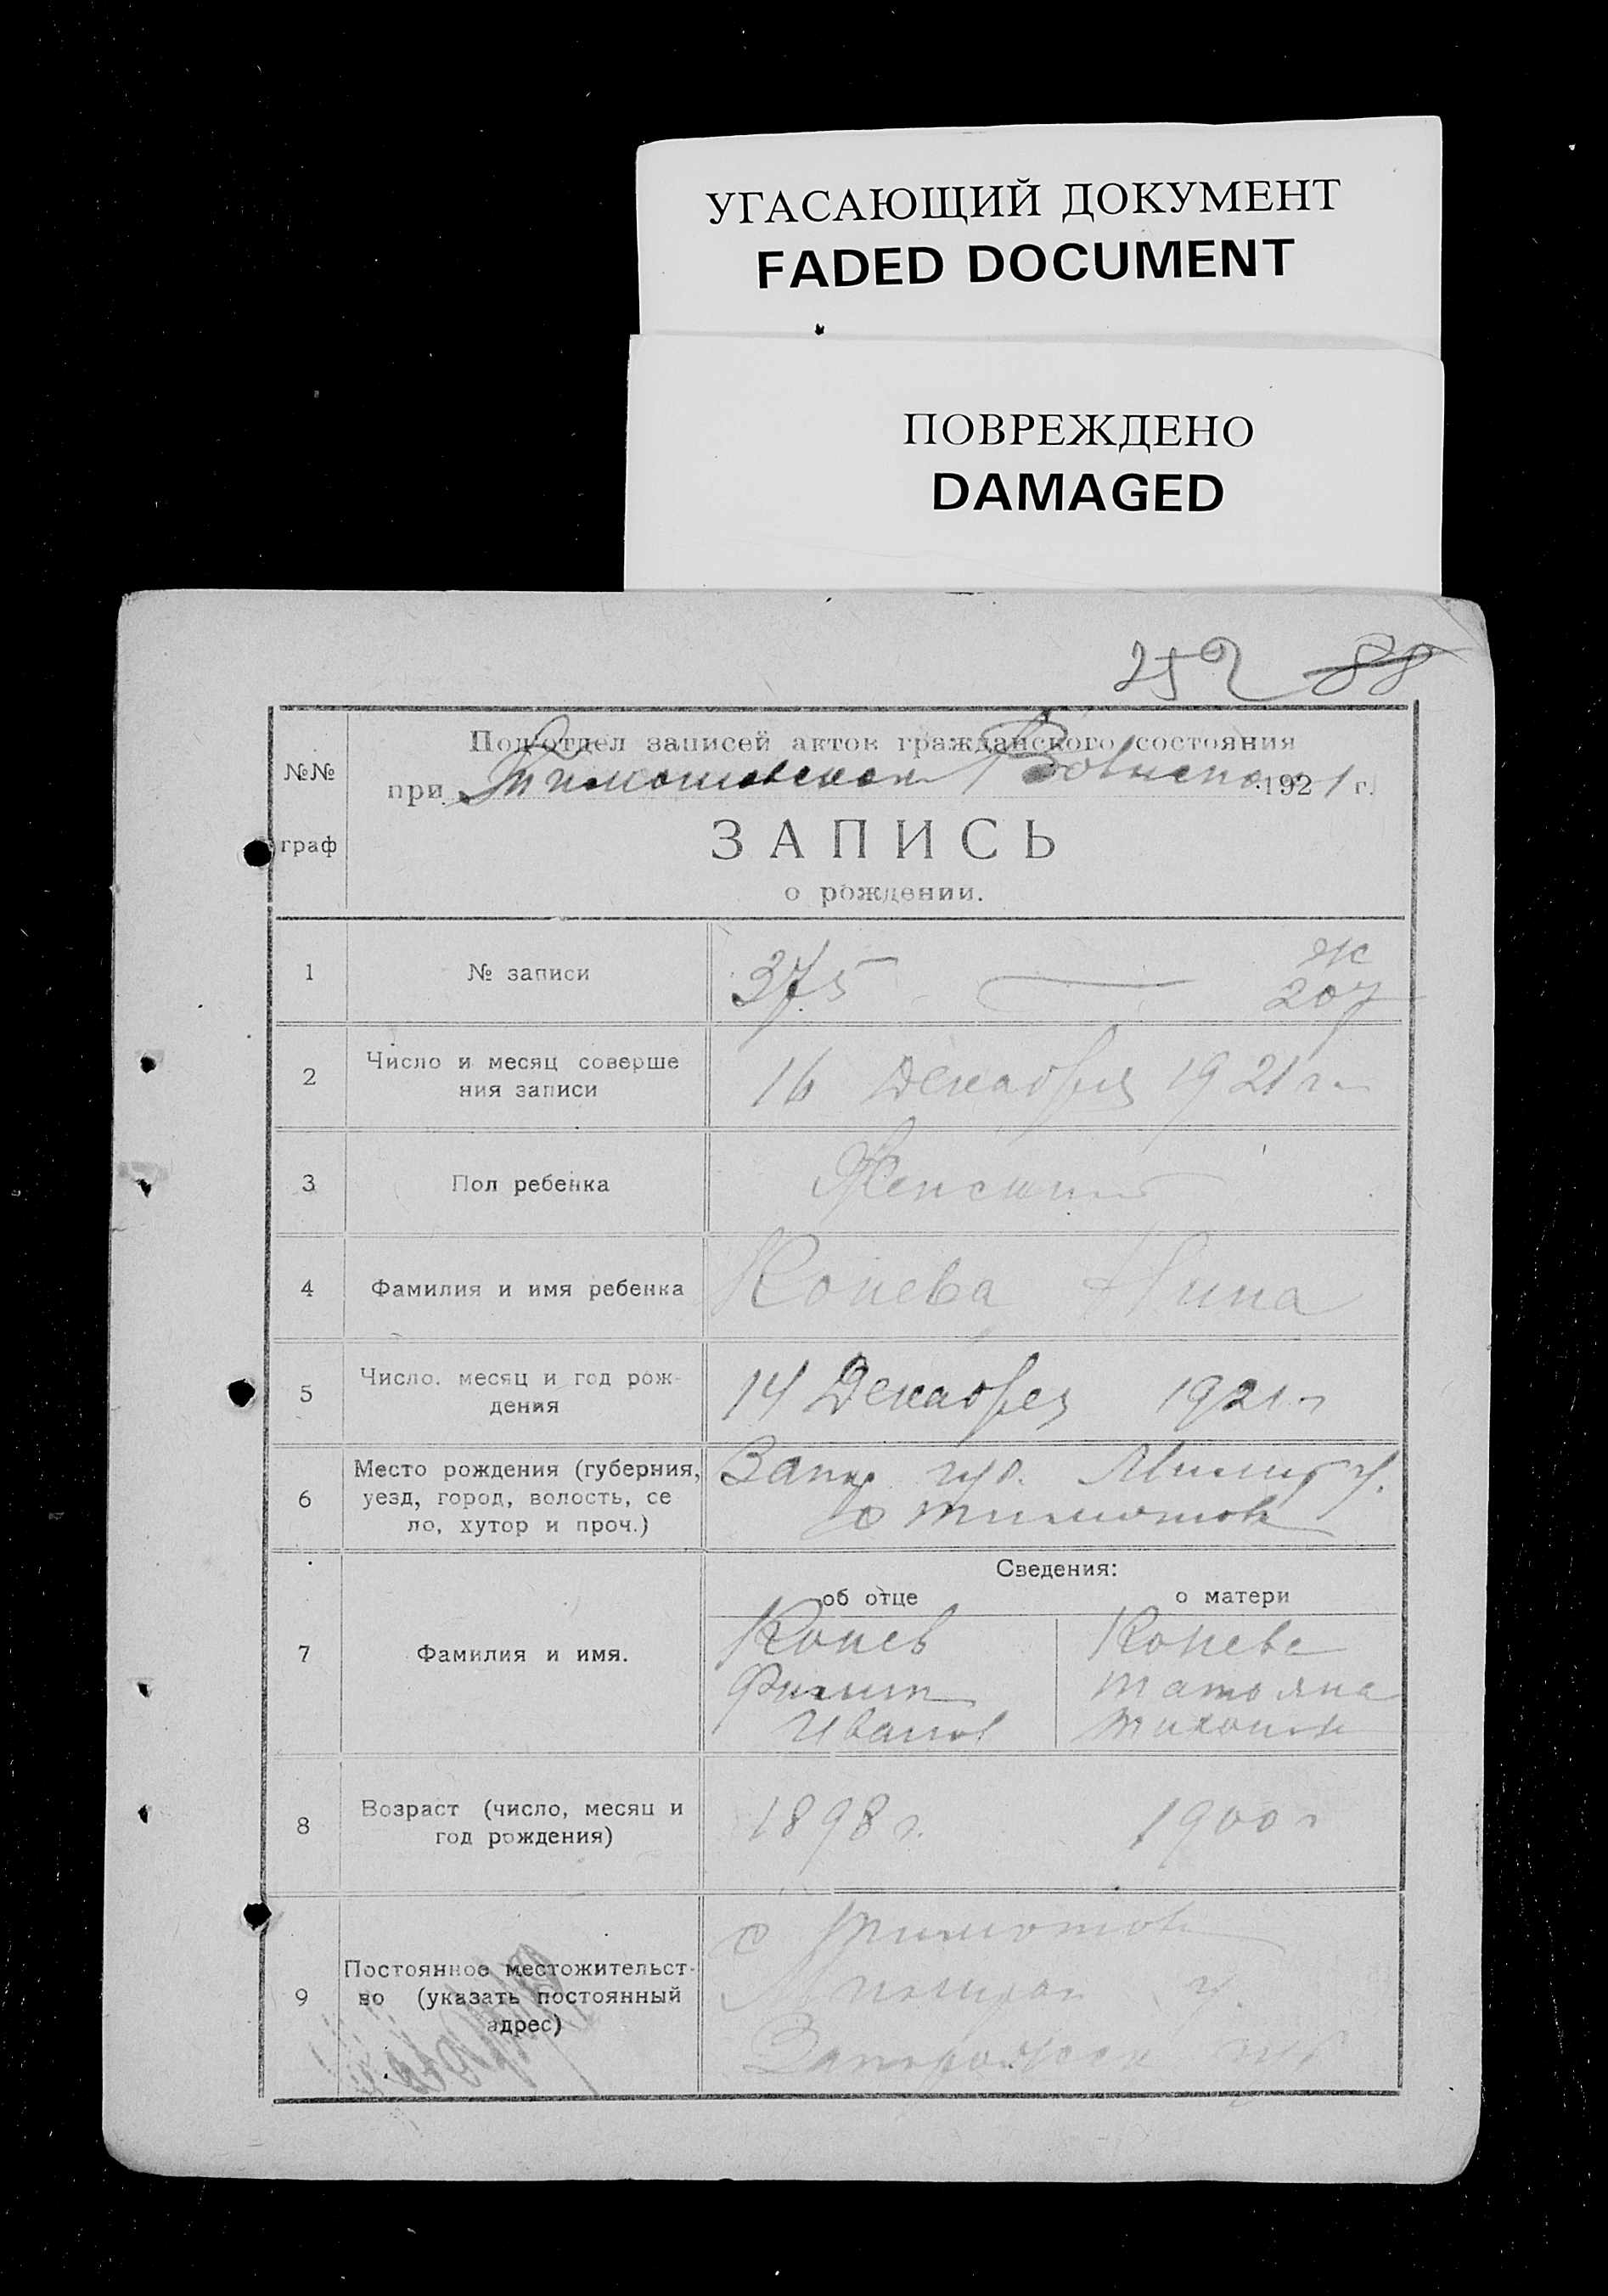 УГАСАЮЩИЙ ДОКУМЕНТ
FADED DOCUMENT
ПОВРЕЖДЕНО
DAMAGED
252 88
Подотдел записей актов гражданского состояния
№№
при 1921 г.
граф
ЗАПИСЬ
о рождении.
1 № записи 375 Ж
207
2 Число и месяц соверше
ния записи
16 Декабря 1921 г.
3 Пол ребенка Женский
4 Фамилия и имя ребенка Конева Нина
5 Число. месяц и год рож-
дения
14 Декабря 1921 г
6 Место рождения (губерния,
уезд, город, волость, се
ло, хутор и проч.)
Запор губ. у.
с
Сведения:
об отце о матери
7 Фамилия и имя.
Конев Конева
Филип Татьяна
Иванов Тихонов
8 Возраст (число, месяц и
год рождения)
1898 г. 1900 г
9 Постоянное местожительст-
во (указать постоянный
адрес)
с
у.
губ